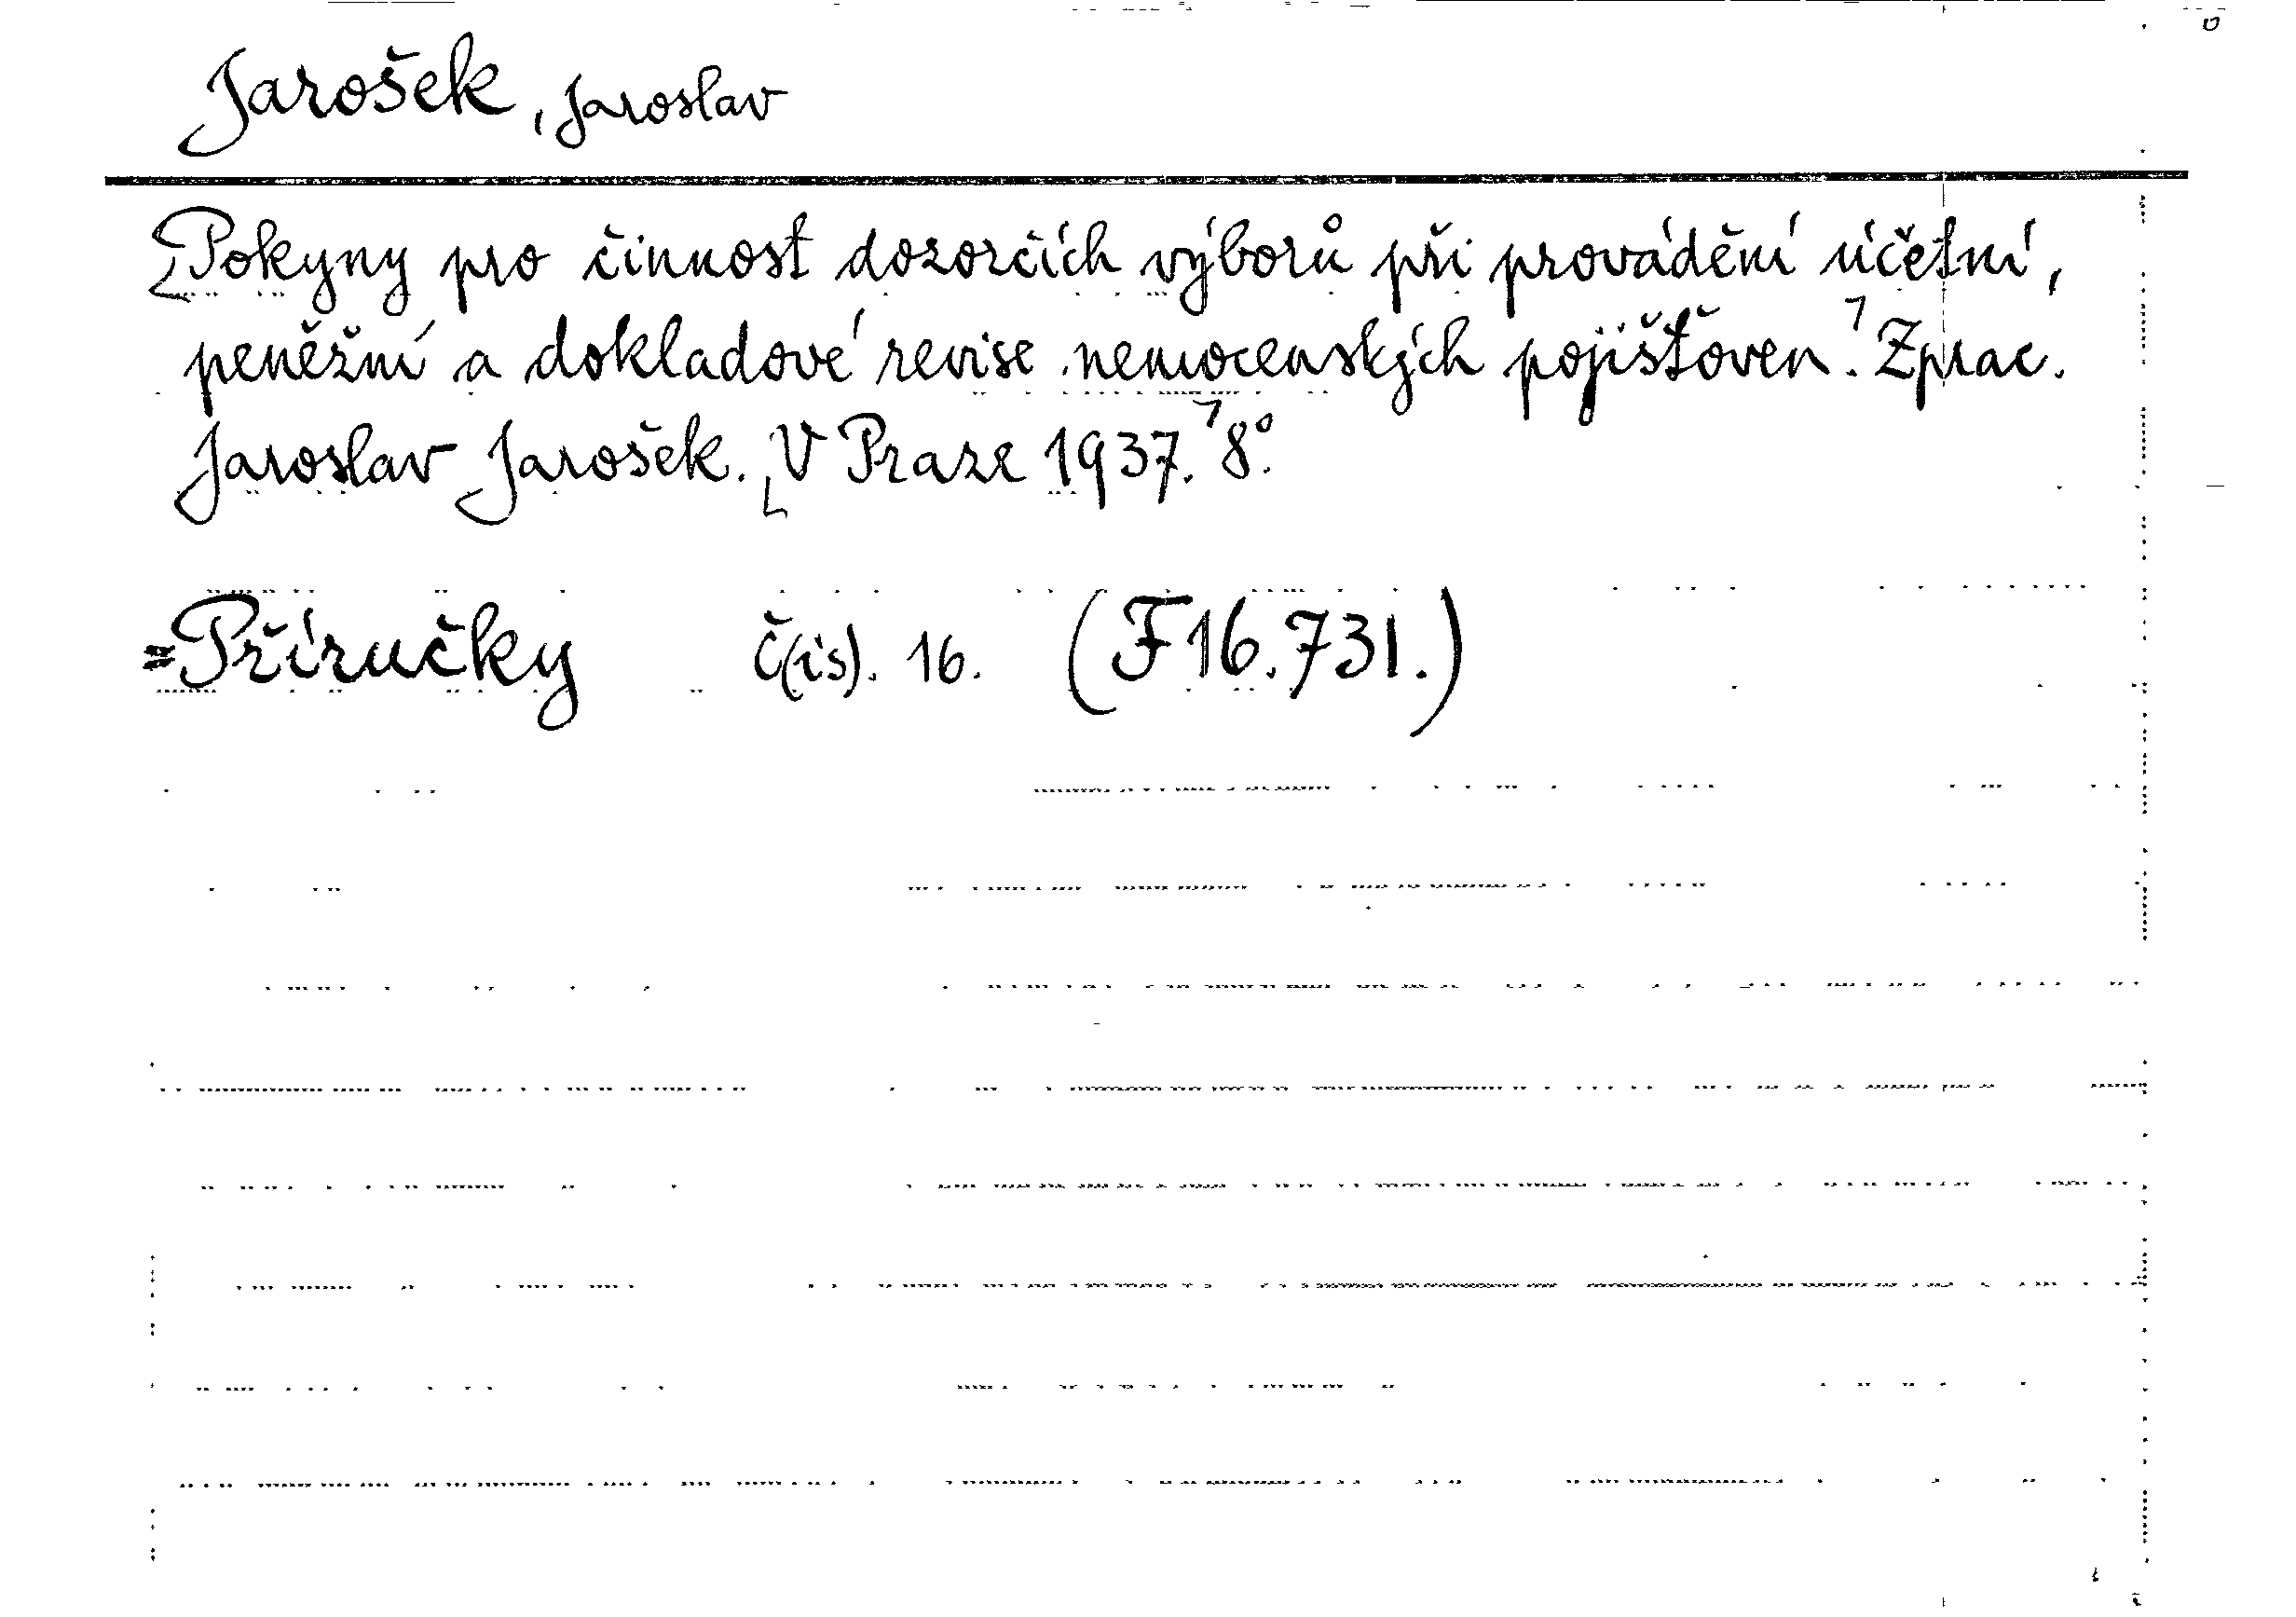 Jarošek, Jaroslav
Pokyny pro činnost dozorčích výborů při provádění účetní,
peněžní a dokladové revise nemocenských pojišťoven. Zprac.
Jaroslav Jarošek. V Praze 1937. 8°.
=Příručky č(ís). 16. (F16.731.)